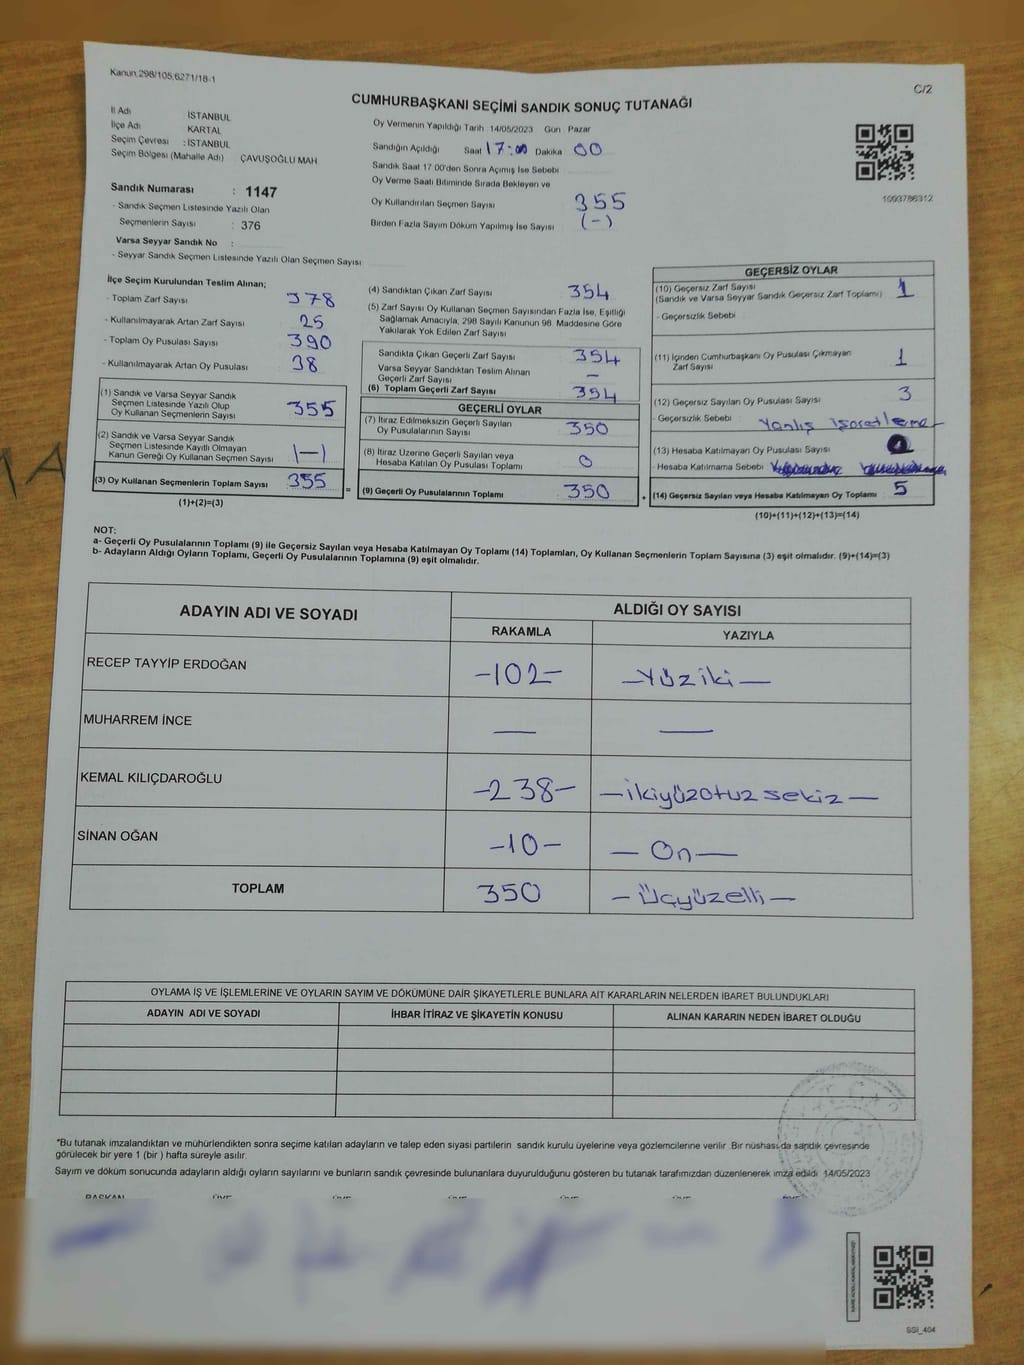 Kanun.298/105,6271/18-1
C/2
CUMHURBAŞKANI SEÇİMİ SANDIK SONUÇ TUTANAĞI
İl Adı İSTANBUL
İlçe Adı KARTAL
Seçim Çevresi : İSTANBUL
Seçim Bölgesi (Mahalle Adı) ÇAVUŞOĞLU MAH
Sandık Numarası : 1147
- Sandık Seçmen Listesinde Yazılı Olan
Seçmenlerin Sayısı : 376
Varsa Seyyar Sandık No :
- Seyyar Sandık Seçmen Listesinde Yazılı Olan Seçmen Sayısı
Oy Vermenin Yapıldığı Tarih 14/05/2023 Gün Pazar
Sandığın Açıldığı Saat 17:00 Dakika 00
Sandık Saat 17 00'den Sonra Açımış İse Sebebi
Oy Verme Saati Bitiminde Sırada Bekleyen ve
Oy Kullandırılan Seçmen Sayısı 355
Birden Fazla Sayım Döküm Yapılmış İse Sayısı (-)
1003786312
İlçe Seçim Kurulundan Teslim Alınan;
- Toplam Zarf Sayısı 378
- Kullanılmayarak Artan Zarf Sayısı 25
- Toplam Oy Pusulası Sayısı 390
- Kullanılmayarak Artan Oy Pusulası 38
(1) Sandık ve Varsa Seyyar Sandık
Seçmen Listesinde Yazılı Olup
Oy Kullanan Seçmenlerin Sayısı 355
(2) Sandık ve Varsa Seyyar Sandık
Seçmen Listesinde Kayıtlı Olmayan
Kanun Gereği Oy Kullanan Seçmen Sayısı 1—1
(3) Oy Kullanan Seçmenlerin Toplam Sayısı 355 =
(1)+(2)=(3)
(4) Sandıktan Çıkan Zarf Sayısı 354
(5) Zarf Sayısı Oy Kullanan Seçmen Sayısından Fazla İse, Eşitliği
Sağlamak Amacıyla, 298 Sayılı Kanunun 98. Maddesine Göre
Yakılarak Yok Edilen Zarf Sayısı
Sandıkta Çıkan Geçerli Zarf Sayısı 354
Varsa Seyyar Sandıktan Teslim Alınan
Geçerli Zarf Sayısı —
(6) Toplam Geçerli Zarf Sayısı 354
GEÇERLİ OYLAR
(7) İtiraz Edilmeksizin Geçerli Sayılan
Oy Pusulalarının Sayısı 350
(8) İtiraz Üzerine Geçerli Sayılan veya
Hesaba Katılan Oy Pusulası Toplamı 0
(9) Geçerli Oy Pusulalarının Toplamı 350 +
GEÇERSİZ OYLAR
(10) Geçersiz Zarf Sayısı 1
(Sandık ve Varsa Seyyar Sandık Geçersiz Zarf Toplamı)
- Geçersizlik Sebebi
(11) İçinden Cumhurbaşkanı Oy Pusulası Çıkmayan
Zarf Sayısı 1
(12) Geçersiz Sayılan Oy Pusulası Sayısı 3
- Geçersizlik Sebebi : Yanlış işaretleme
(13) Hesaba Katılmayan Oy Pusulası Sayısı
- Hesaba Katılmama Sebebi
(14) Geçersiz Sayılan veya Hesaba Katılmayan Oy Toplamı 5
(10)+(11)+(12)+(13)=(14)
NOT:
a- Geçerli Oy Pusulalarının Toplamı (9) ile Geçersiz Sayılan veya Hesaba Katılmayan Oy Toplamı (14) Toplamları, Oy Kullanan Seçmenlerin Toplam Sayısına (3) eşit olmalıdır. (9)+(14)=(3)
b- Adayların Aldığı Oyların Toplamı, Geçerli Oy Pusulalarının Toplamına (9) eşit olmalıdır.
ADAYIN ADI VE SOYADI
ALDIĞI OY SAYISI
RAKAMLA YAZIYLA
RECEP TAYYİP ERDOĞAN -102- —Yüziki—
MUHARREM İNCE — —
KEMAL KILIÇDAROĞLU -238- —ikiyüzotuz sekiz—
SİNAN OĞAN -10- —On—
TOPLAM 350 —Üçyüzelli—
OYLAMA İŞ VE İŞLEMLERİNE VE OYLARIN SAYIM VE DÖKÜMÜNE DAİR ŞİKAYETLERLE BUNLARA AİT KARARLARIN NELERDEN İBARET BULUNDUKLARI
ADAYIN ADI VE SOYADI İHBAR İTİRAZ VE ŞİKAYETİN KONUSU ALINAN KARARIN NEDEN İBARET OLDUĞU
*Bu tutanak imzalandıktan ve mühürlendikten sonra seçime katılan adayların ve talep eden siyasi partilerin sandık kurulu üyelerine veya gözlemcilerine verilir. Bir nüshası da sandık çevresinde
görülecek bir yere 1 (bir ) hafta süreyle asılır.
Sayım ve döküm sonucunda adayların aldığı oyların sayılarını ve bunların sandık çevresinde bulunanlara duyurulduğunu gösteren bu tutanak tarafımızdan düzenlenerek imza edildi 14/05/2023
BAŞKAN ÜYE ÜYE ÜYE ÜYE ÜYE
SSİ_404